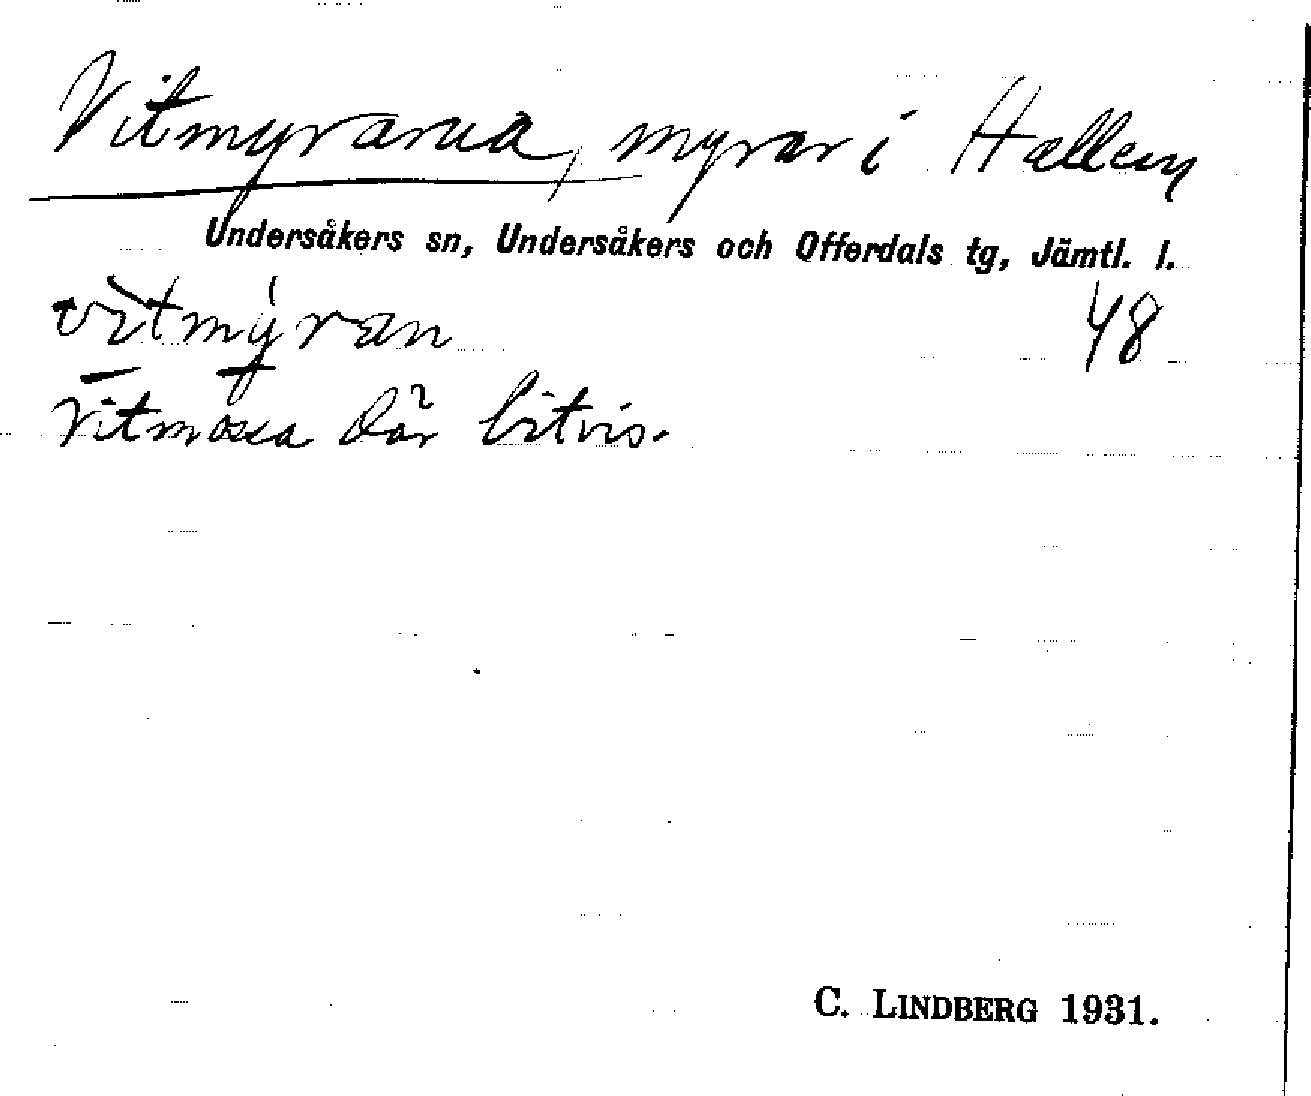 Vitmyrarna, myrar i Hallen
Undersåkers sn, Undersåkers och Offerdals tg, Jämtl. l.
vìtmýran 48
Vitmossa där bitvis.
C. LINDBERG 1931.